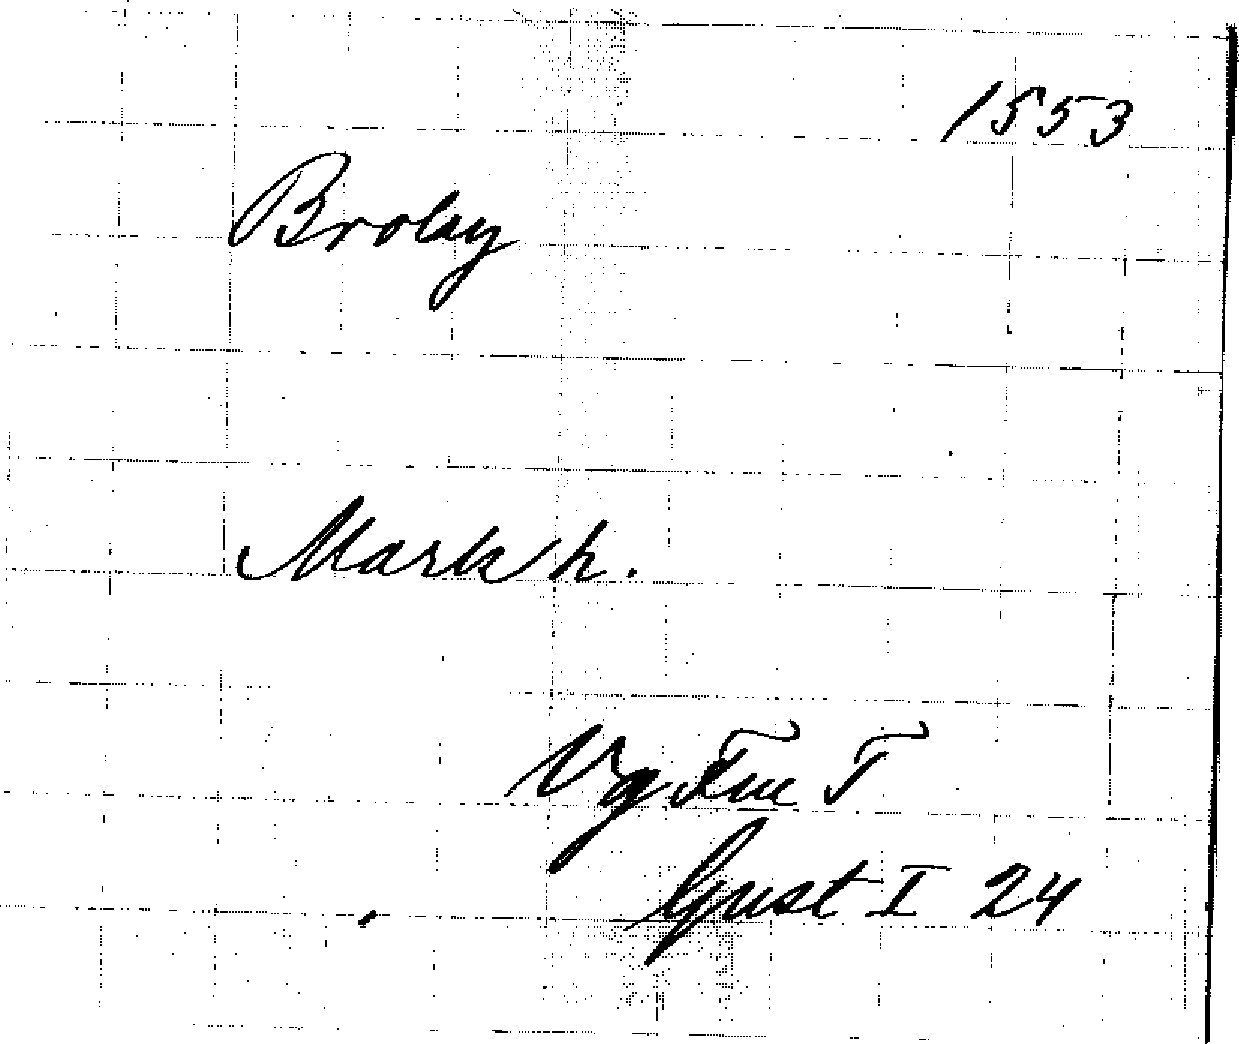 1553
Broby
Mark h.
Vg Fin T
Gust I 24